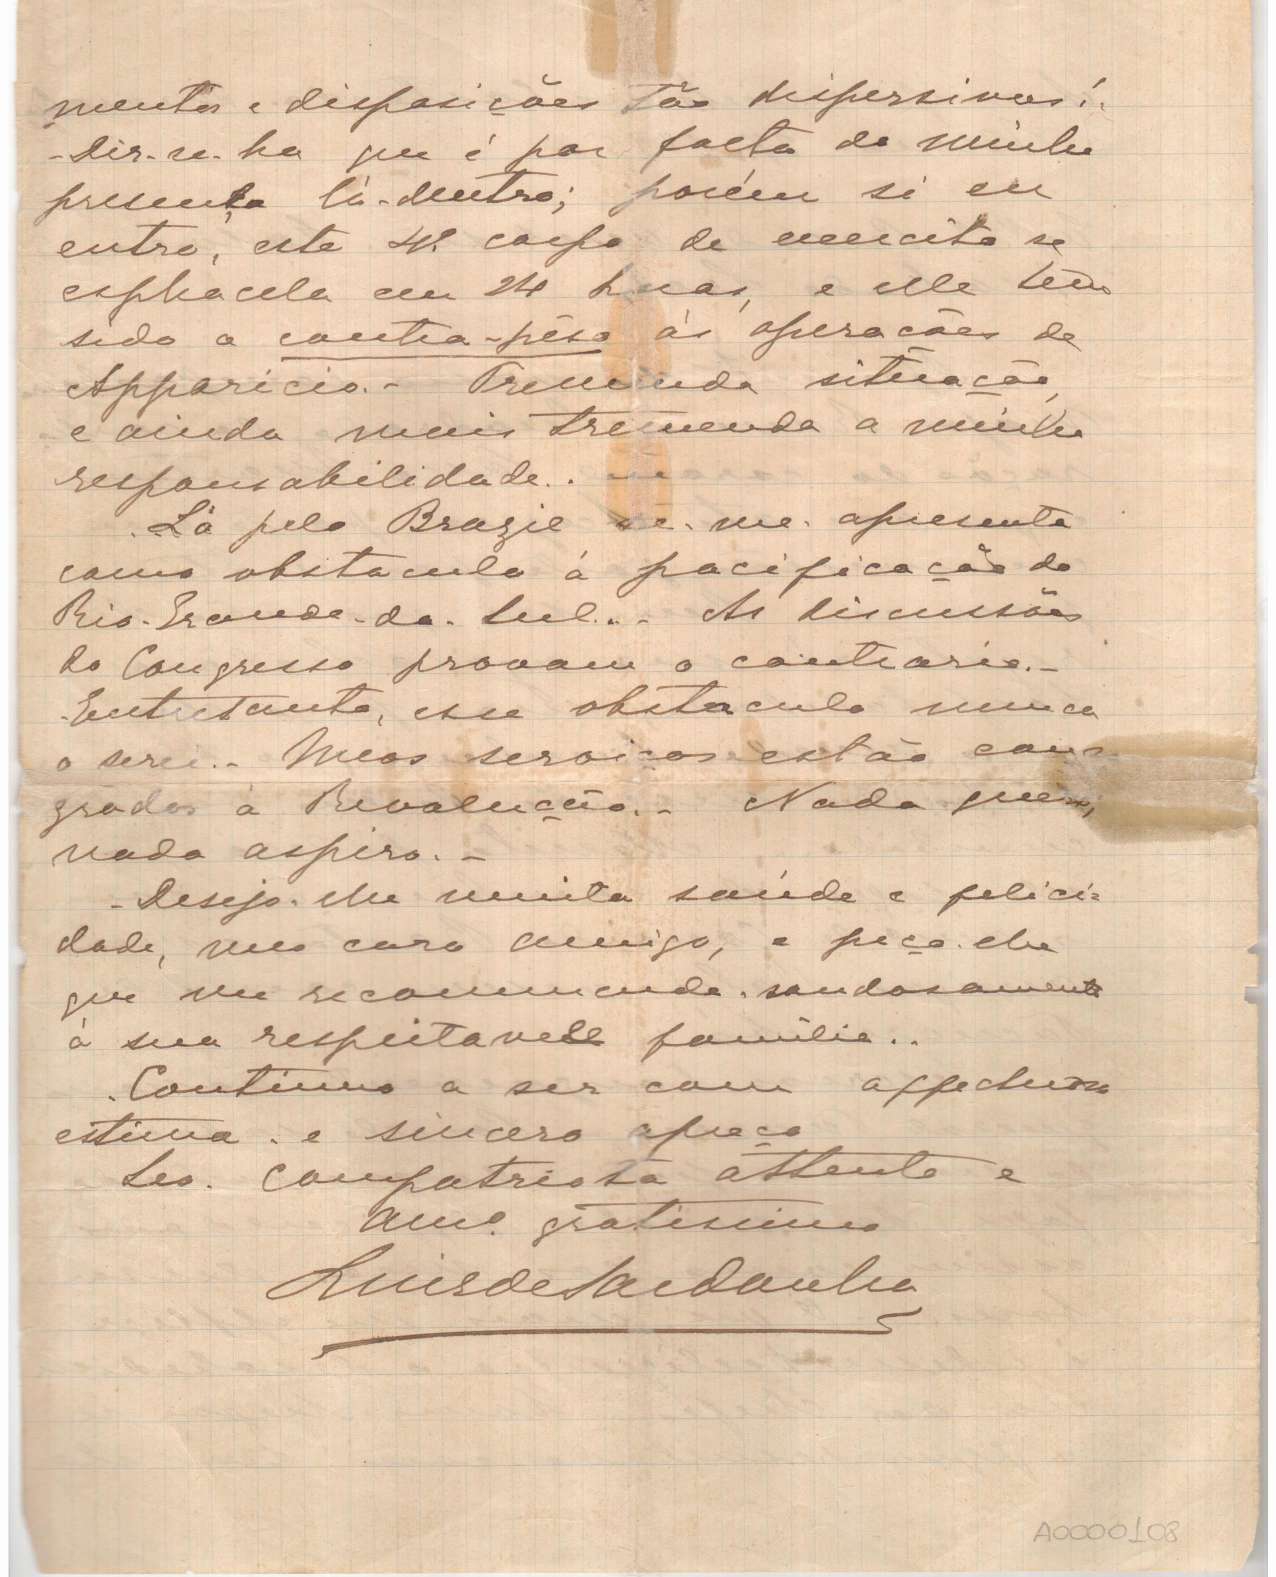 mentos e disposições tão dispersivas!.
- Dir-se-ha que é por falta da minha
presença lá-dentro; porém si eu
entro, este 4º corpo de exercito se
esphacela em 24 horas, e elle têm
sido o contra-pêso ás operações de
Apparicio.- Tremenda situação,
e ainda mais tremenda a minha
responsabilidade..
. Lá pelo Brazil se-me-apresenta
como obstaculo á pacificação do
Rio-Grande-do-Sul..- As discussões
do Congresso provam o contrario.-
-Entretanto, esse obstaculo nunca
o serei.- Meos serviços estão con
grados á Revolução.- Nada quero,
nada aspiro.-
- Desejo-lhe muita saúde e felici=
dade, meo caro amigo, e peço-lhe
que me recommende saudosamente
á sua respeitavel familia..
. Continuo a ser com affectuosa
estima e sincero apreço
Seo. compatriota attento e
Amº. gratissimo
Luis de Saldanha
A0000108